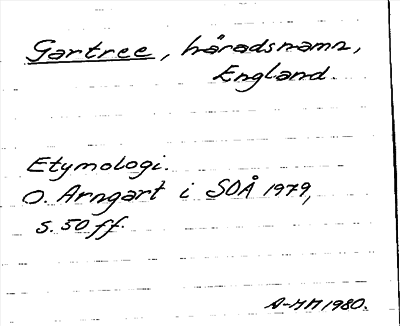 Gartree, häradsnamn,
England.
Etymologi.
O. Arngart i SOÅ 1979,
s. 50 ff.
A-MH 1980.